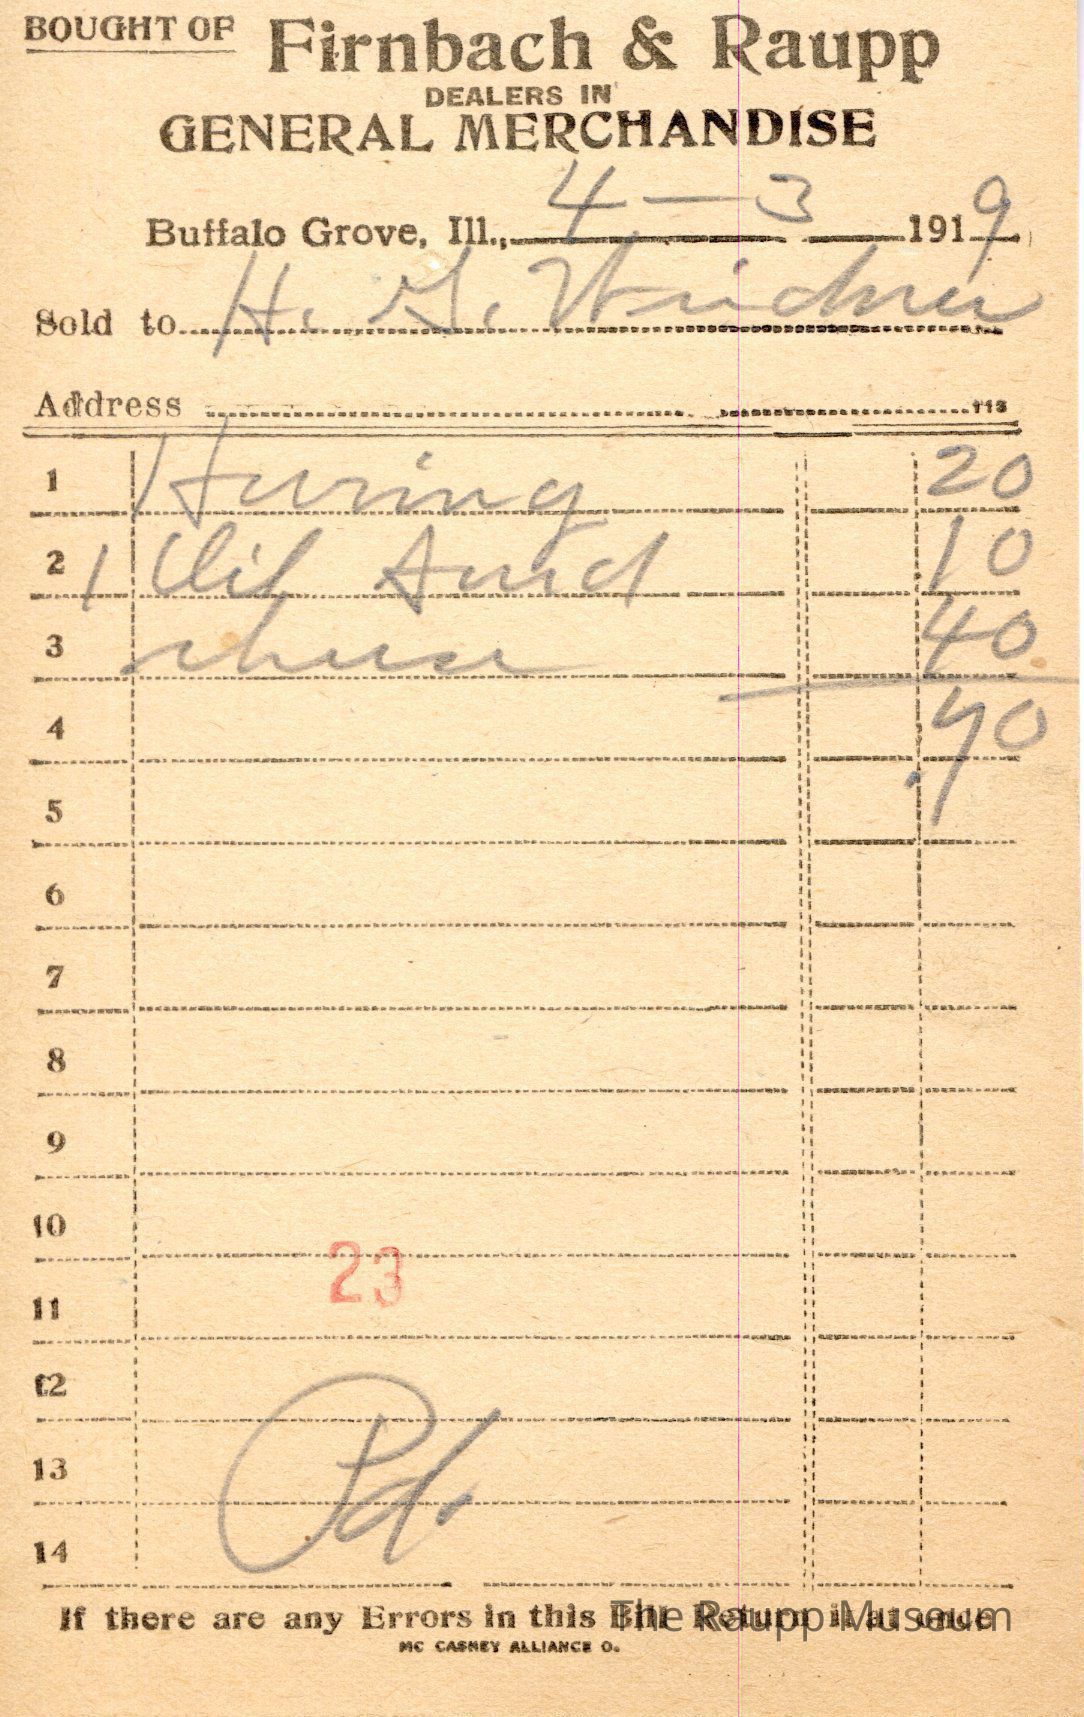 BOUGHT OF Firnbach & Raupp
DEALERS IN
GENERAL MERCHANDISE
Buffalo Grove, Ill., 4-3 1919
Sold to H. G. Weidner
Address
113
1 Hering 20
2 1 10
3 chese 40
4 .70
5
6
7
8
9
10
23
11
12
13
Pd.
14
If there are any Errors in this Bill Return it at once
The Raupp Museum
MC CASKEY ALLIANCE O.